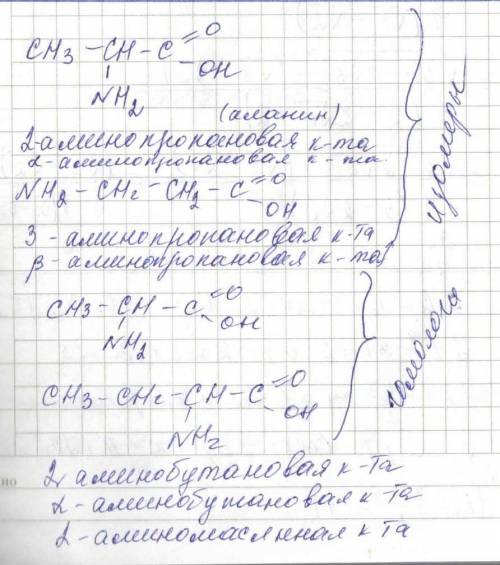 CH3 - CH - C =O
OH
NH2
(аланин)
2-аминопропановая к-та
α-аминопропановая к-та
NH2 - CH2 - CH2 - C =O
OH
3-аминопропановая к-та
β-аминопропановая к-та
изомеры
CH3 - CH - C =O
OH
NH2
CH3 - CH2 - CH - C =O
OH
NH2
гомологи
2 аминобутановая к-та
α-аминобутановая к та
α-аминомасляная к та